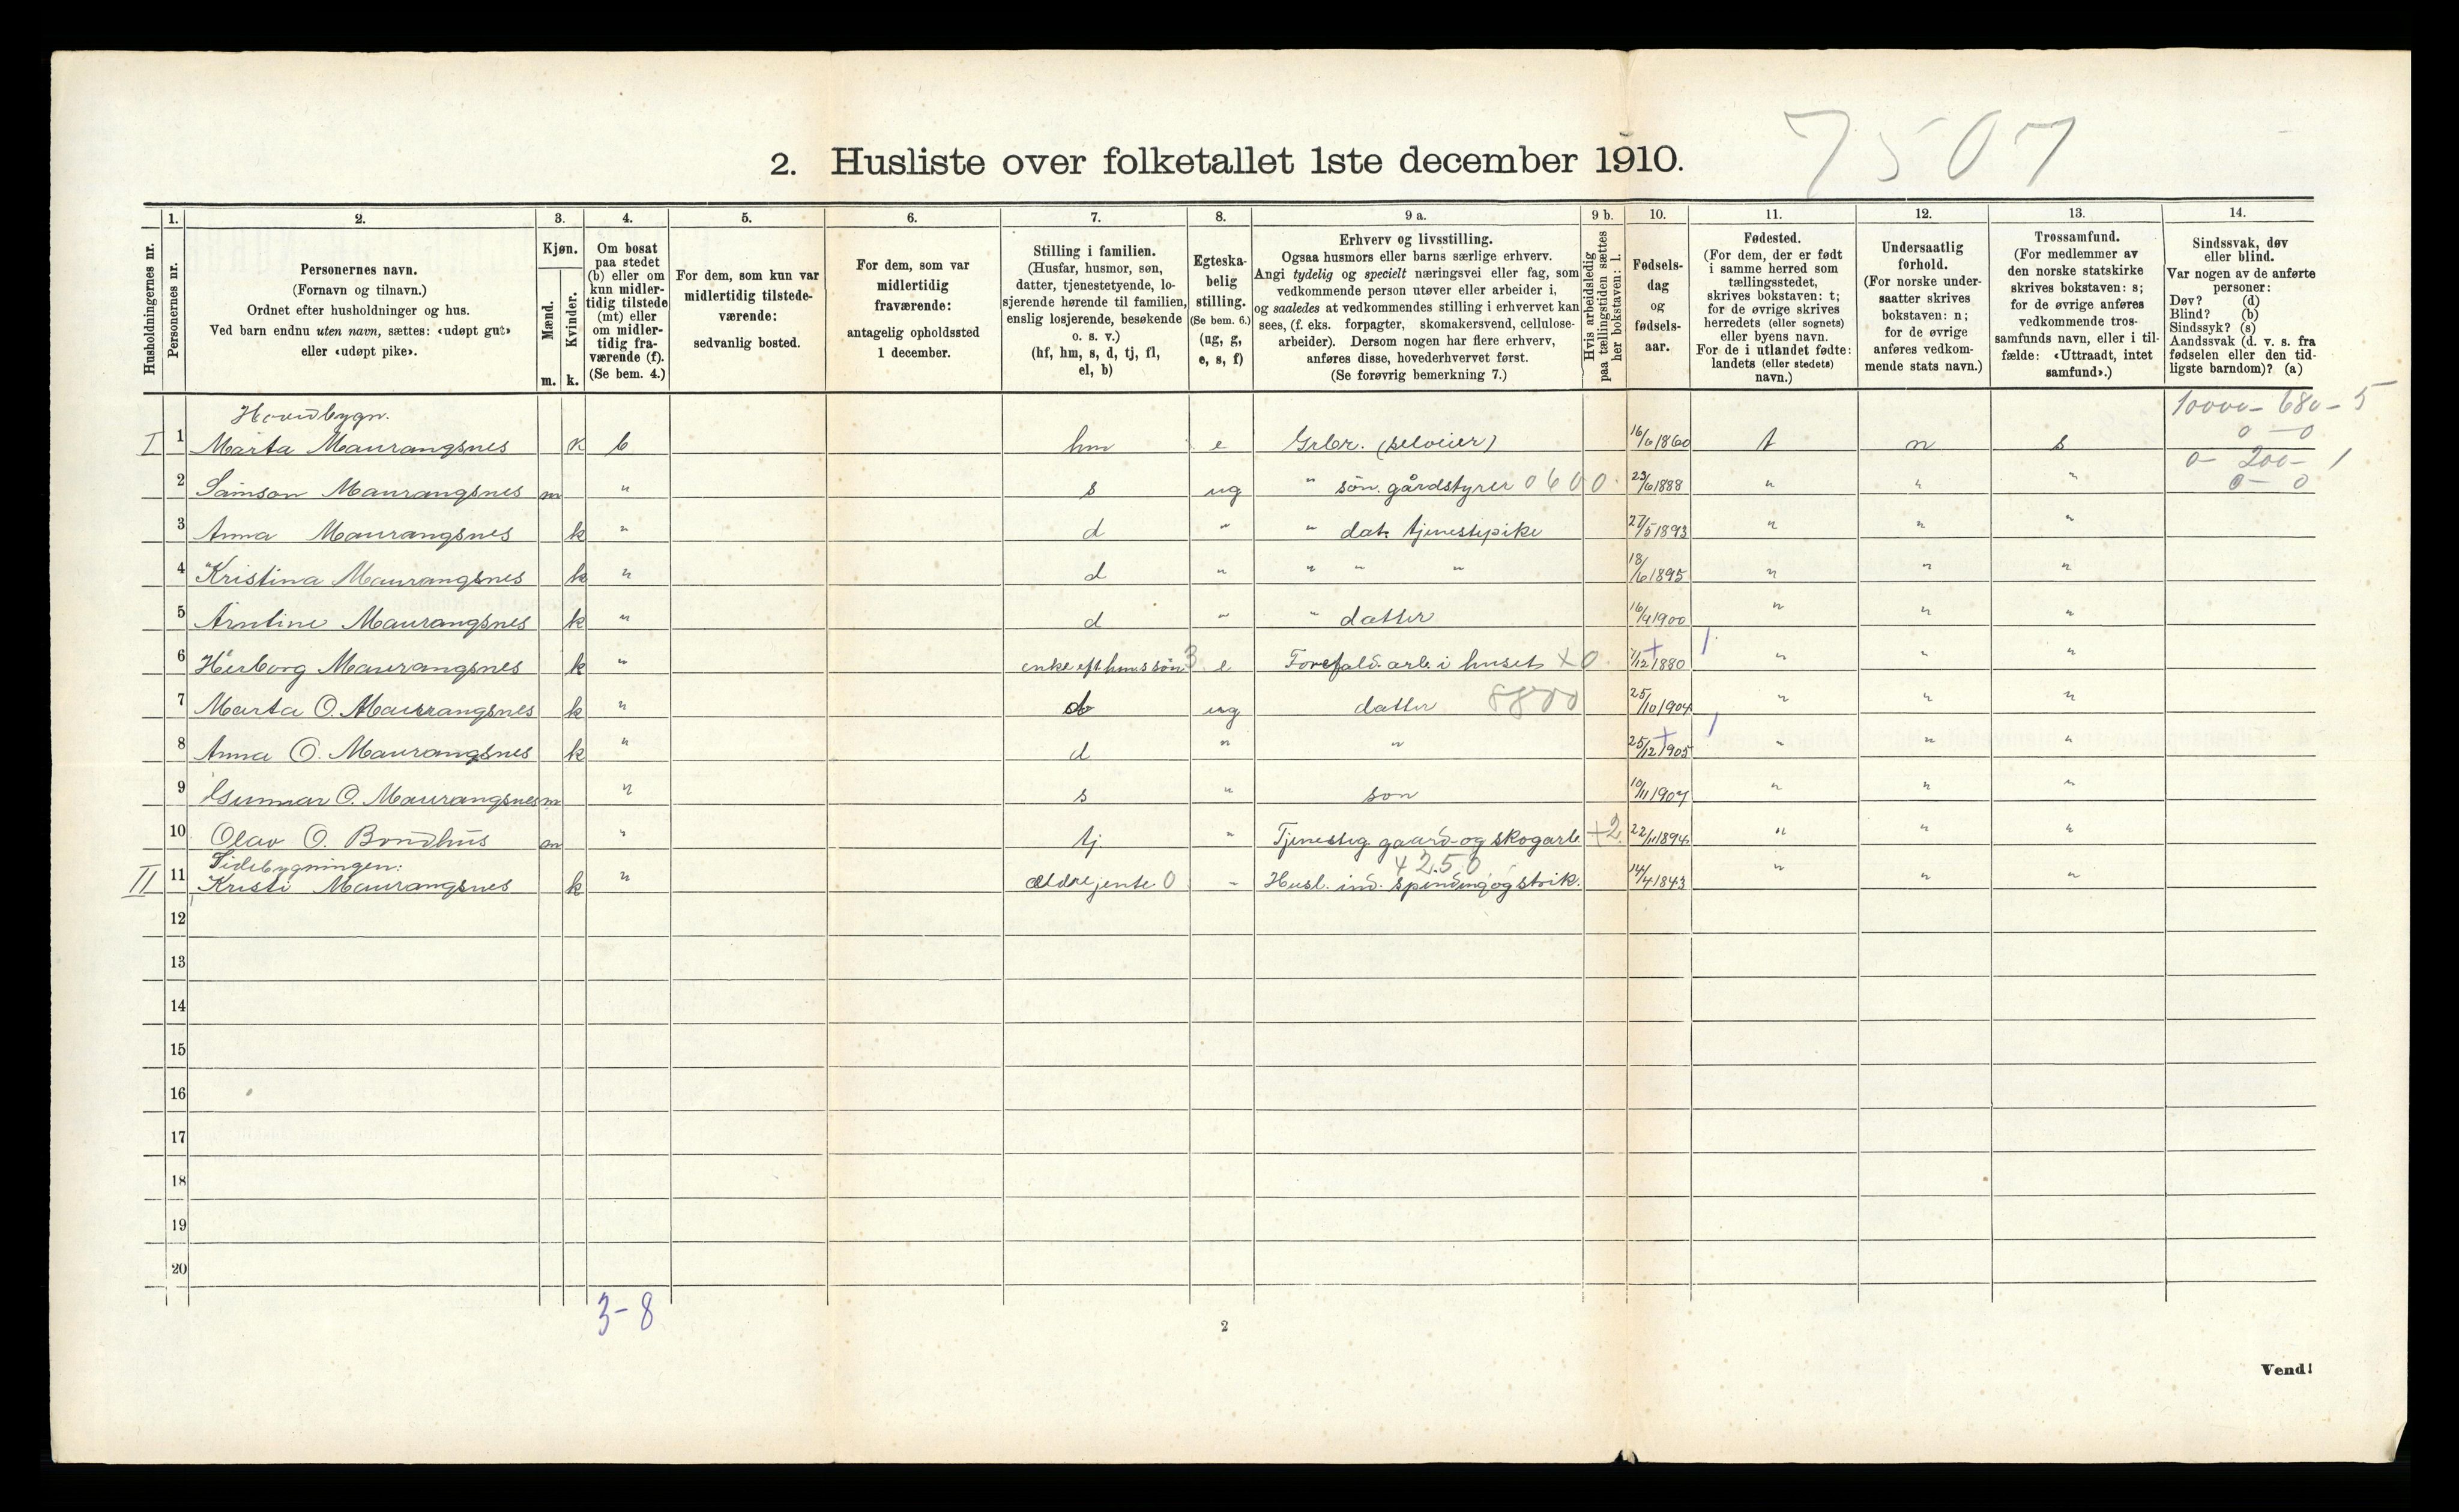 7507
2. Husliste over folketallet 1ste december 1910.
Husholdningernes nr.
1. Personernes nr.
2. Personernes navn.
(Fornavn og tilnavn.)
Ordnet efter husholdninger og hus.
Ved barn endnu uten navn, sættes: «udøpt gut»
eller «udøpt pike».
3. Kjøn.
Mænd. Kvinder.
m. k.
4. Om bosat
paa stedet
(b) eller om
kun midler-
tidig tilstede
(mt) eller
om midler-
tidig fra-
værende (f).
(Se bem. 4.)
5. For dem, som kun var
midlertidig tilstede-
værende:
sedvanlig bosted.
6. For dem, som var
midlertidig
fraværende:
antagelig opholdssted
1 december.
7. Stilling i familien.
(Husfar, husmor, søn,
datter, tjenestetyende, lo-
sjerende hørende til familien,
enslig losjerende, besøkende
o. s. v.)
(hf, hm, s, d, tj, fl,
el, b)
8. Egteska-
belig
stilling.
(Se bem. 6.)
(ug, g,
e, s, f)
9 a. Erhverv og livsstilling.
Ogsaa husmors eller barns særlige erhverv.
Angi tydelig og specielt næringsvei eller fag, som
vedkommende person utøver eller arbeider i,
og saaledes at vedkommendes stilling i erhvervet kan
sees, (f. eks. forpagter, skomakersvend, cellulose-
arbeider). Dersom nogen har flere erhverv,
anføres disse, hovederhvervet først.
(Se forøvrig bemerkning 7.)
9 b. Hvis arbeidsledig
paa tællingstiden sættes
her bokstaven: l.
10. Fødsels-
dag
og
fødsels-
aar.
11. Fødested.
(For dem, der er født
i samme herred som
tællingsstedet,
skrives bokstaven: t;
for de øvrige skrives
herredets (eller sognets)
eller byens navn.
For de i utlandet fødte:
landets (eller stedets)
navn.)
12. Undersaatlig
forhold.
(For norske under-
saatter skrives
bokstaven: n;
for de øvrige
anføres vedkom-
mende stats navn.)
13. Trossamfund.
(For medlemmer av
den norske statskirke
skrives bokstaven: s;
for de øvrige anføres
vedkommende tros-
samfunds navn, eller i til-
fælde: «Uttraadt, intet
samfund».)
14. Sindssvak, døv
eller blind.
Var nogen av de anførte
personer:
Døv? (d)
Blind? (b)
Sindssyk? (s)
Aandssvak (d. v. s. fra
fødselen eller den tid-
ligste barndom)? (a)
Hovedbygn. 10000 - 680 - 5
I 1 Marta Maurangsnes k b hm e Grbr. (selveier) 16/6 1860 t n s 0 - 0
0 - 200 - 1
2 Samson Maurangsnes m " s ug " søn. gårdstyrer 0600 23/6 1888 " " " 0 - 0
3 Anna Maurangsnes k " d " " dat. tjenestepike 27/5 1893 " " "
4 Kristina Maurangsnes k " d " " " " 18/6 1895 " " "
5 Arntine Maurangsnes k " d " " datter 16/4 1900 " " "
6 Herborg Maurangsnes k " enke eft. hms søn 3 e Forefald. arb. i huset x0 1/12 1880 + 1 " " "
7 Marta O. Maurangsnes k " d ug datter 8800 25/10 1904 " " "
8 Anna O. Maurangsnes k " d " " 25/12 1905 + 1 " " "
9 Gunnar O. Maurangsnes m " s " søn 10/11 1907 " " "
10 Olav O. Bondhus m " tj " Tjenesteg. gaard- og skogarb. +2 22/11 1894 " " "
Sidebygningen: 4250
II 11 Kristi Maurangsnes k " ældre jente 0 " Husl. ind. spinding og strik. 14/4 1843 " " "
12
13
14
15
16
17
18
19
20
3 - 8
2
Vend!